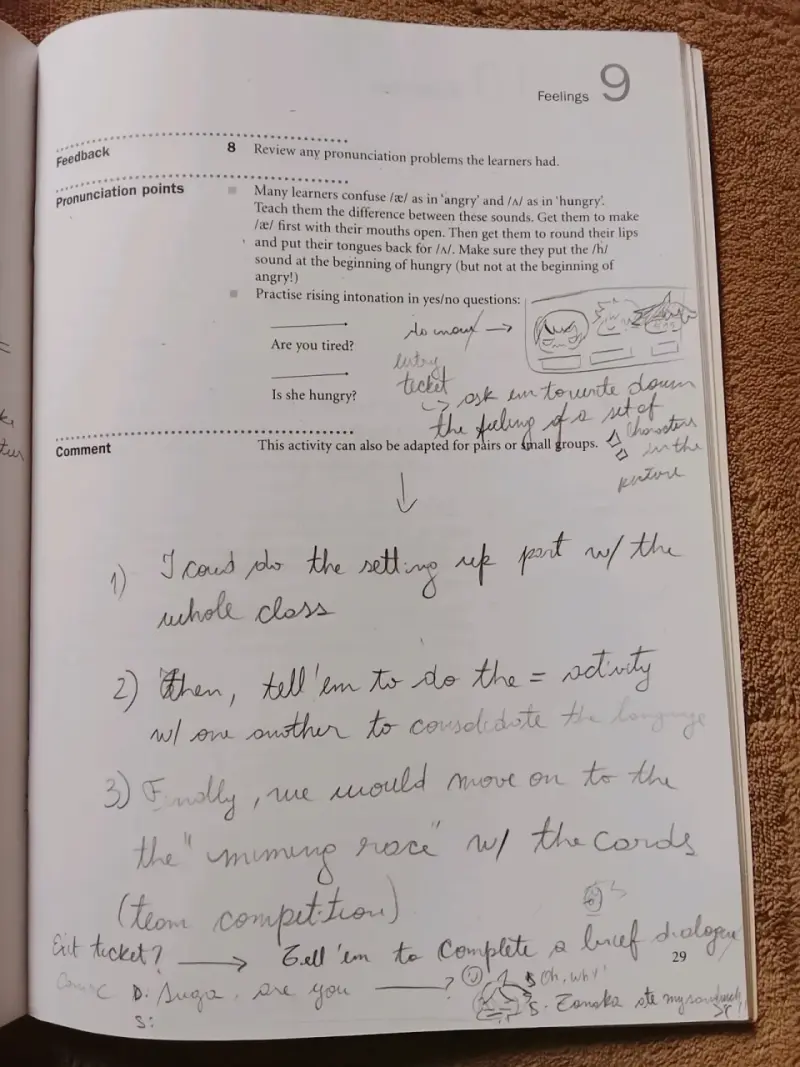 Feelings 9
Feedback
8 Review any pronunciation problems the learners had.
Pronunciation points
Many learners confuse /æ/ as in 'angry' and /ʌ/ as in 'hungry'.
Teach them the difference between these sounds. Get them to make
/æ/ first with their mouths open. Then get them to round their lips
and put their tongues back for /ʌ/. Make sure they put the /h/
sound at the beginning of hungry (but not at the beginning of
angry!)
Practise rising intonation in yes/no questions:
Are you tired?
Is she hungry?
entry
ticket
ask em to write down
the feeling of a set of
characters
in the
picture
Comment
This activity can also be adapted for pairs or small groups.
1) I coud do the setting up part w/ the
whole class
2) then, tell 'em to do the = activity
w/ one another to consolidate the language
3) Finally, we would move on to the
the "miming race" w/ the cards
(team competition)
Exit ticket? → Tell 'em to complete a brief dialogue
29
D: Suga, are you → ?
Oh, why?
S:
S. Tanaka ate my sandwich!!